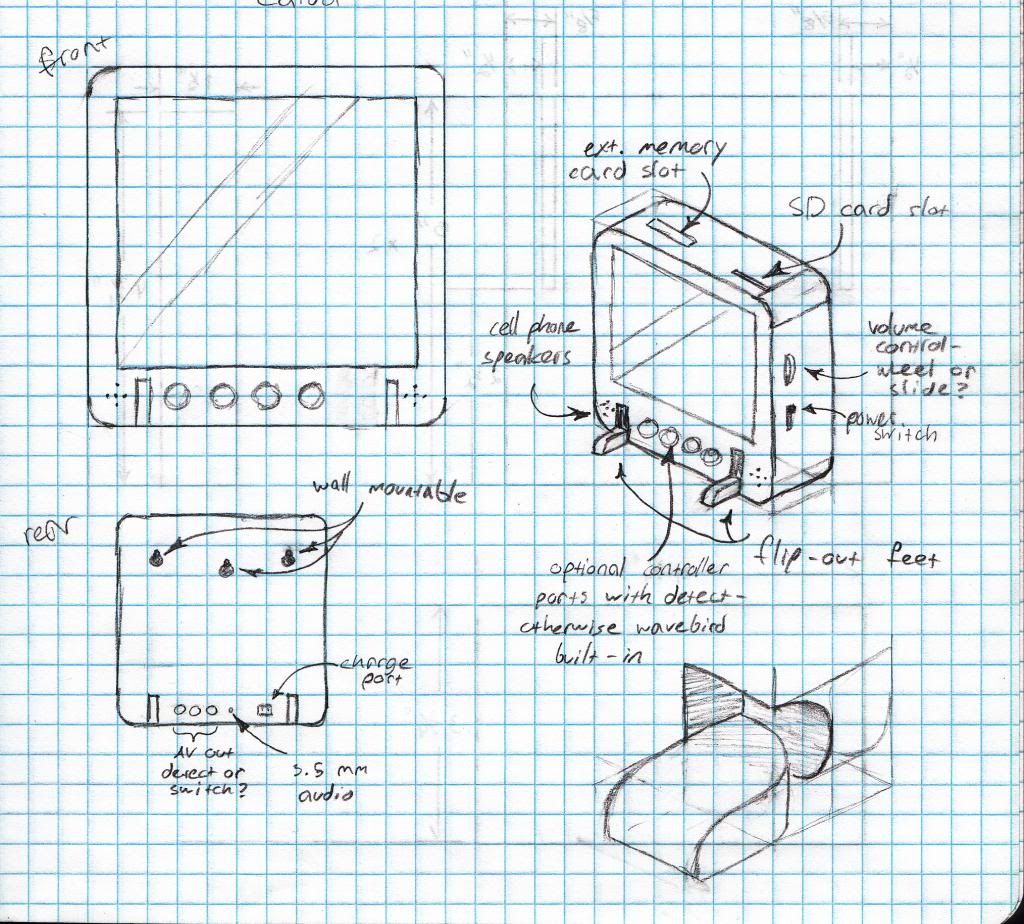 front
ext. memory
card slot
SD card slot
cell phone
speakers
volume
control-
wheel or
slide?
power
switch
wall mountable
rear
flip-out feet
optional controller
ports with detect-
otherwise wavebird
built-in
charge
port
AV out
detect or
switch?
3.5 mm
audio